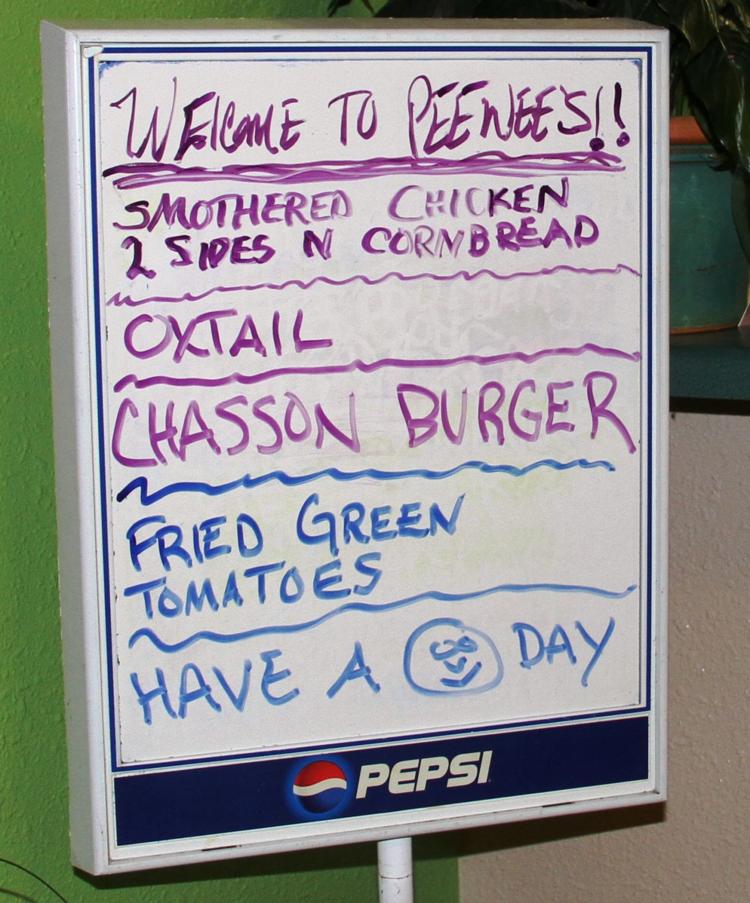 WElcomE TO PEEWEE'S!!
SMOTHERED CHICKEN
2 SIDES N CORNBREAD
OXTAIL
CHASSON BURGER
FRIED GREEN
TOMATOES
HAVE A DAY
PEPSI